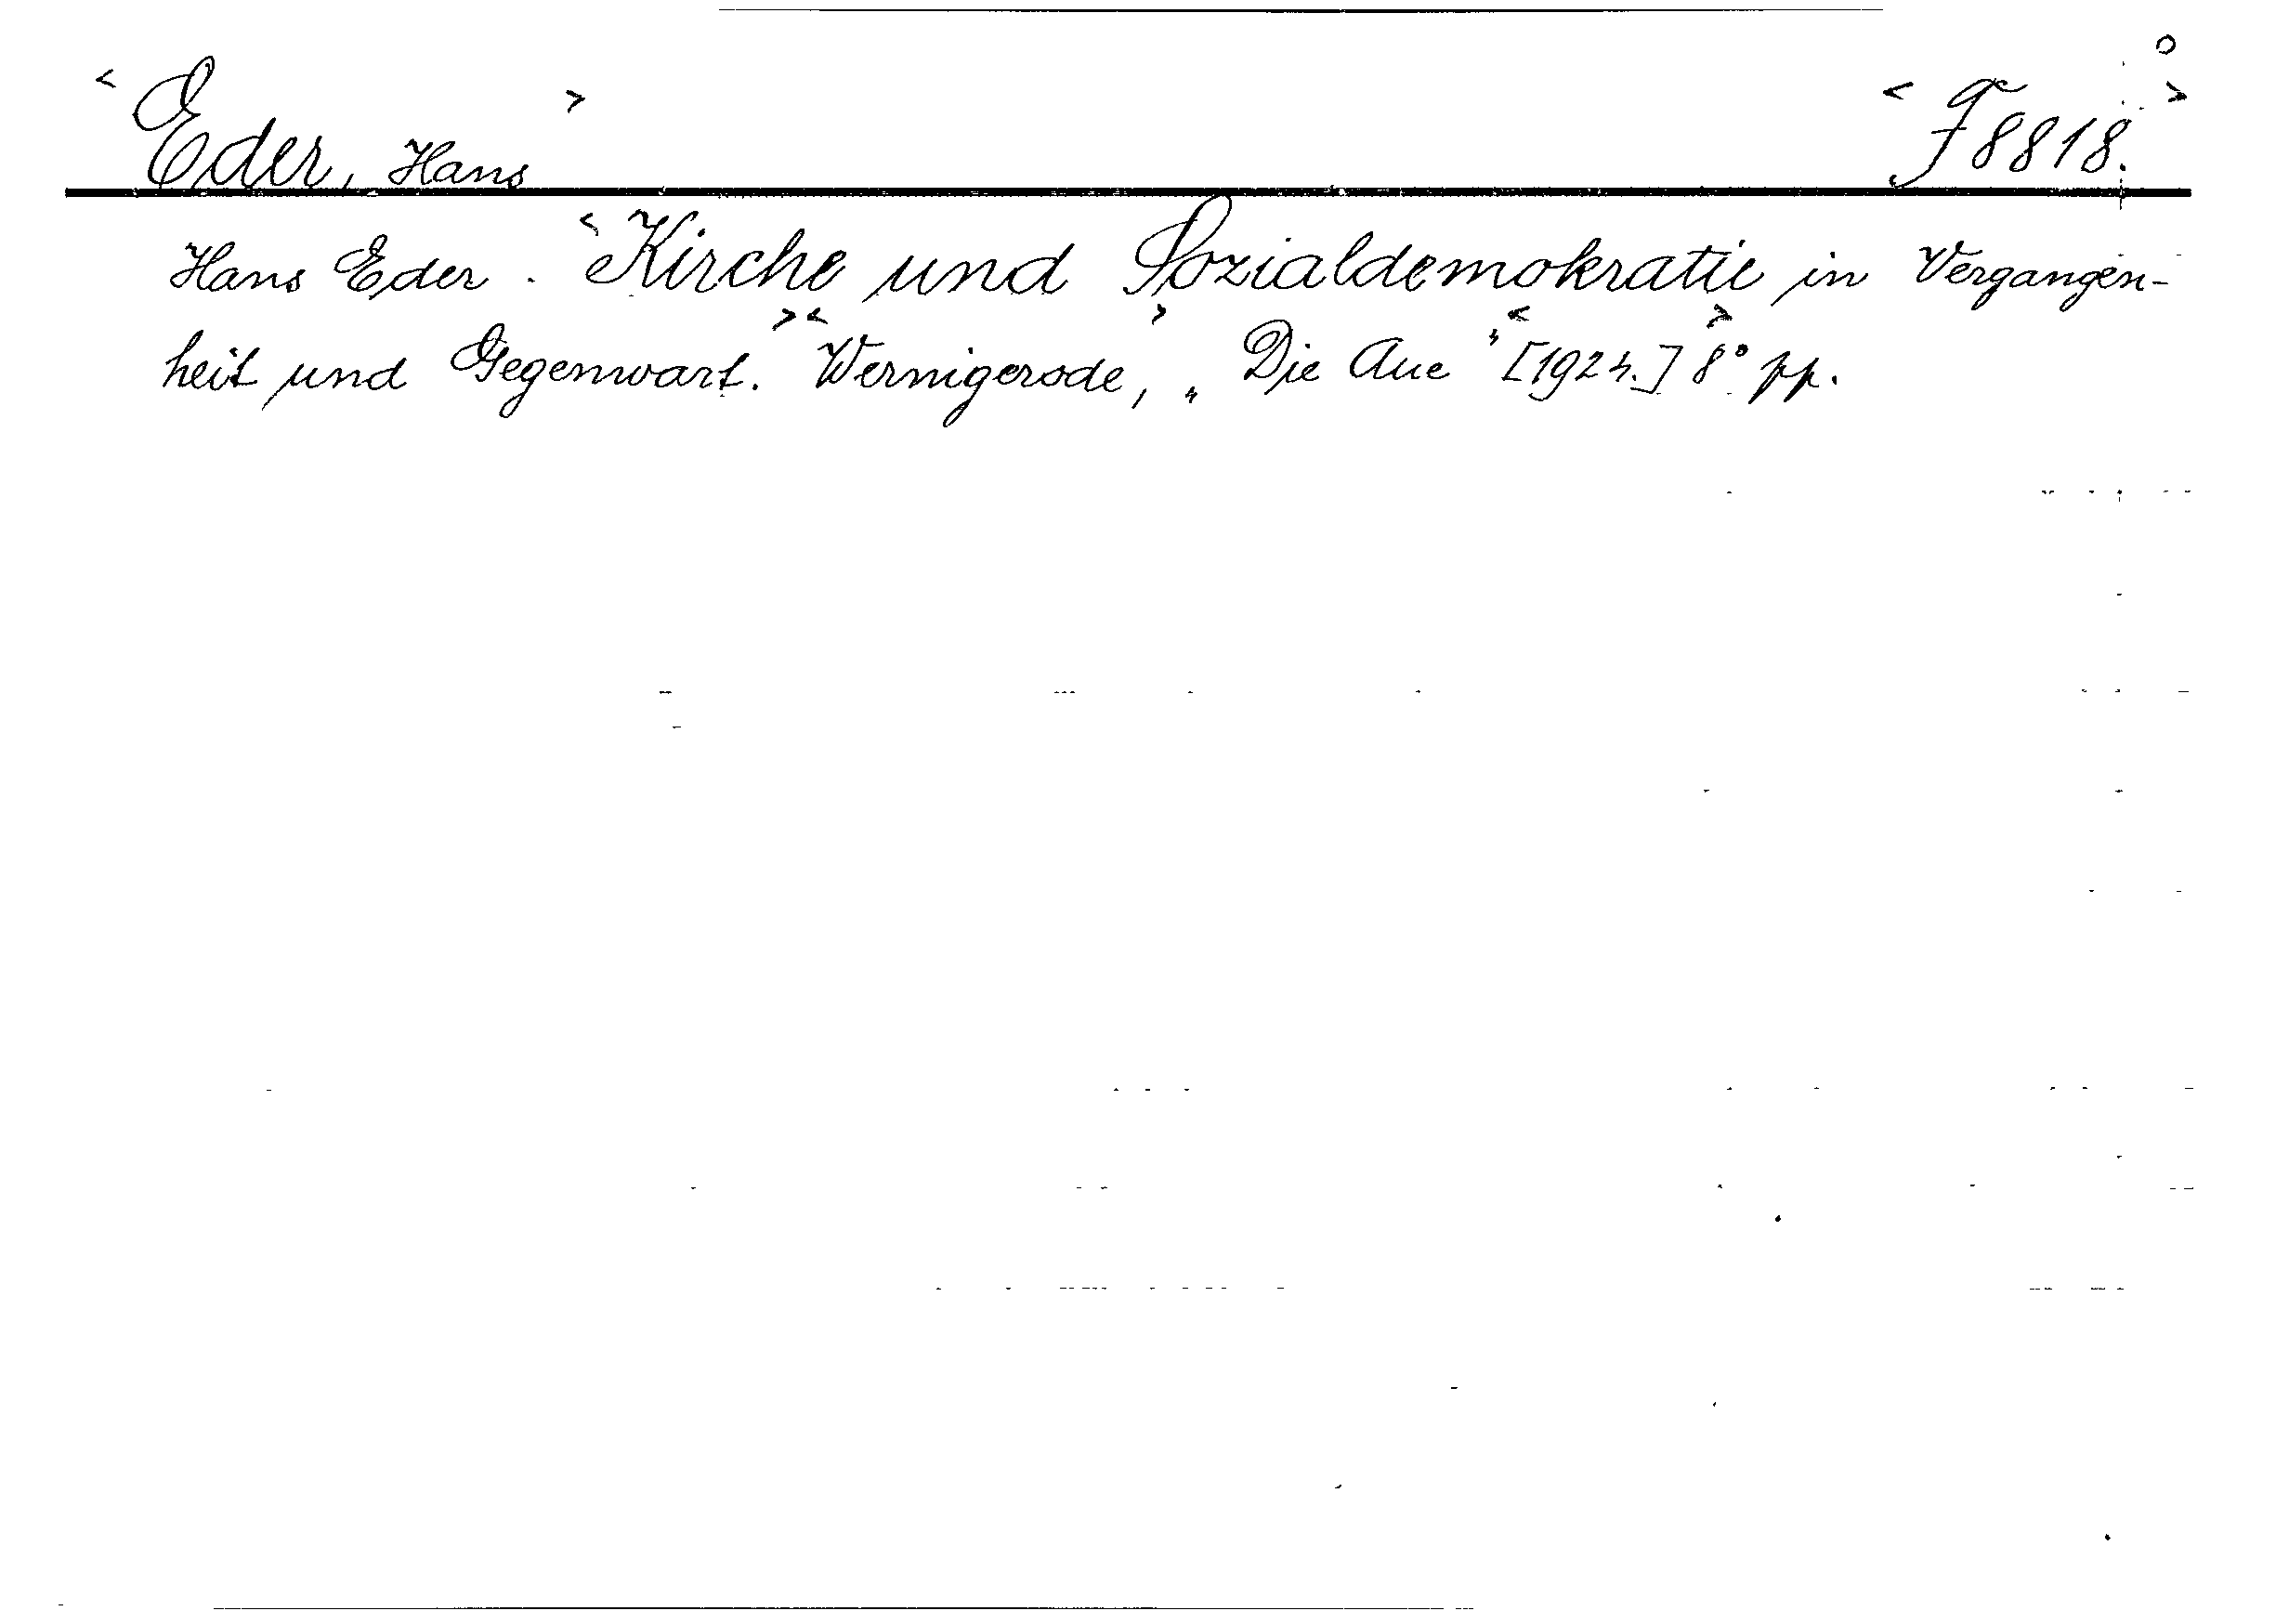 <Eder, Hans> <F 8818.>
Hans Eder. <Kirche und Sozialdemokratie in Vergangen-
heit und Gegenwart.> <Wernigerode,> „Die Aue" <[1924.]> 8° pp.